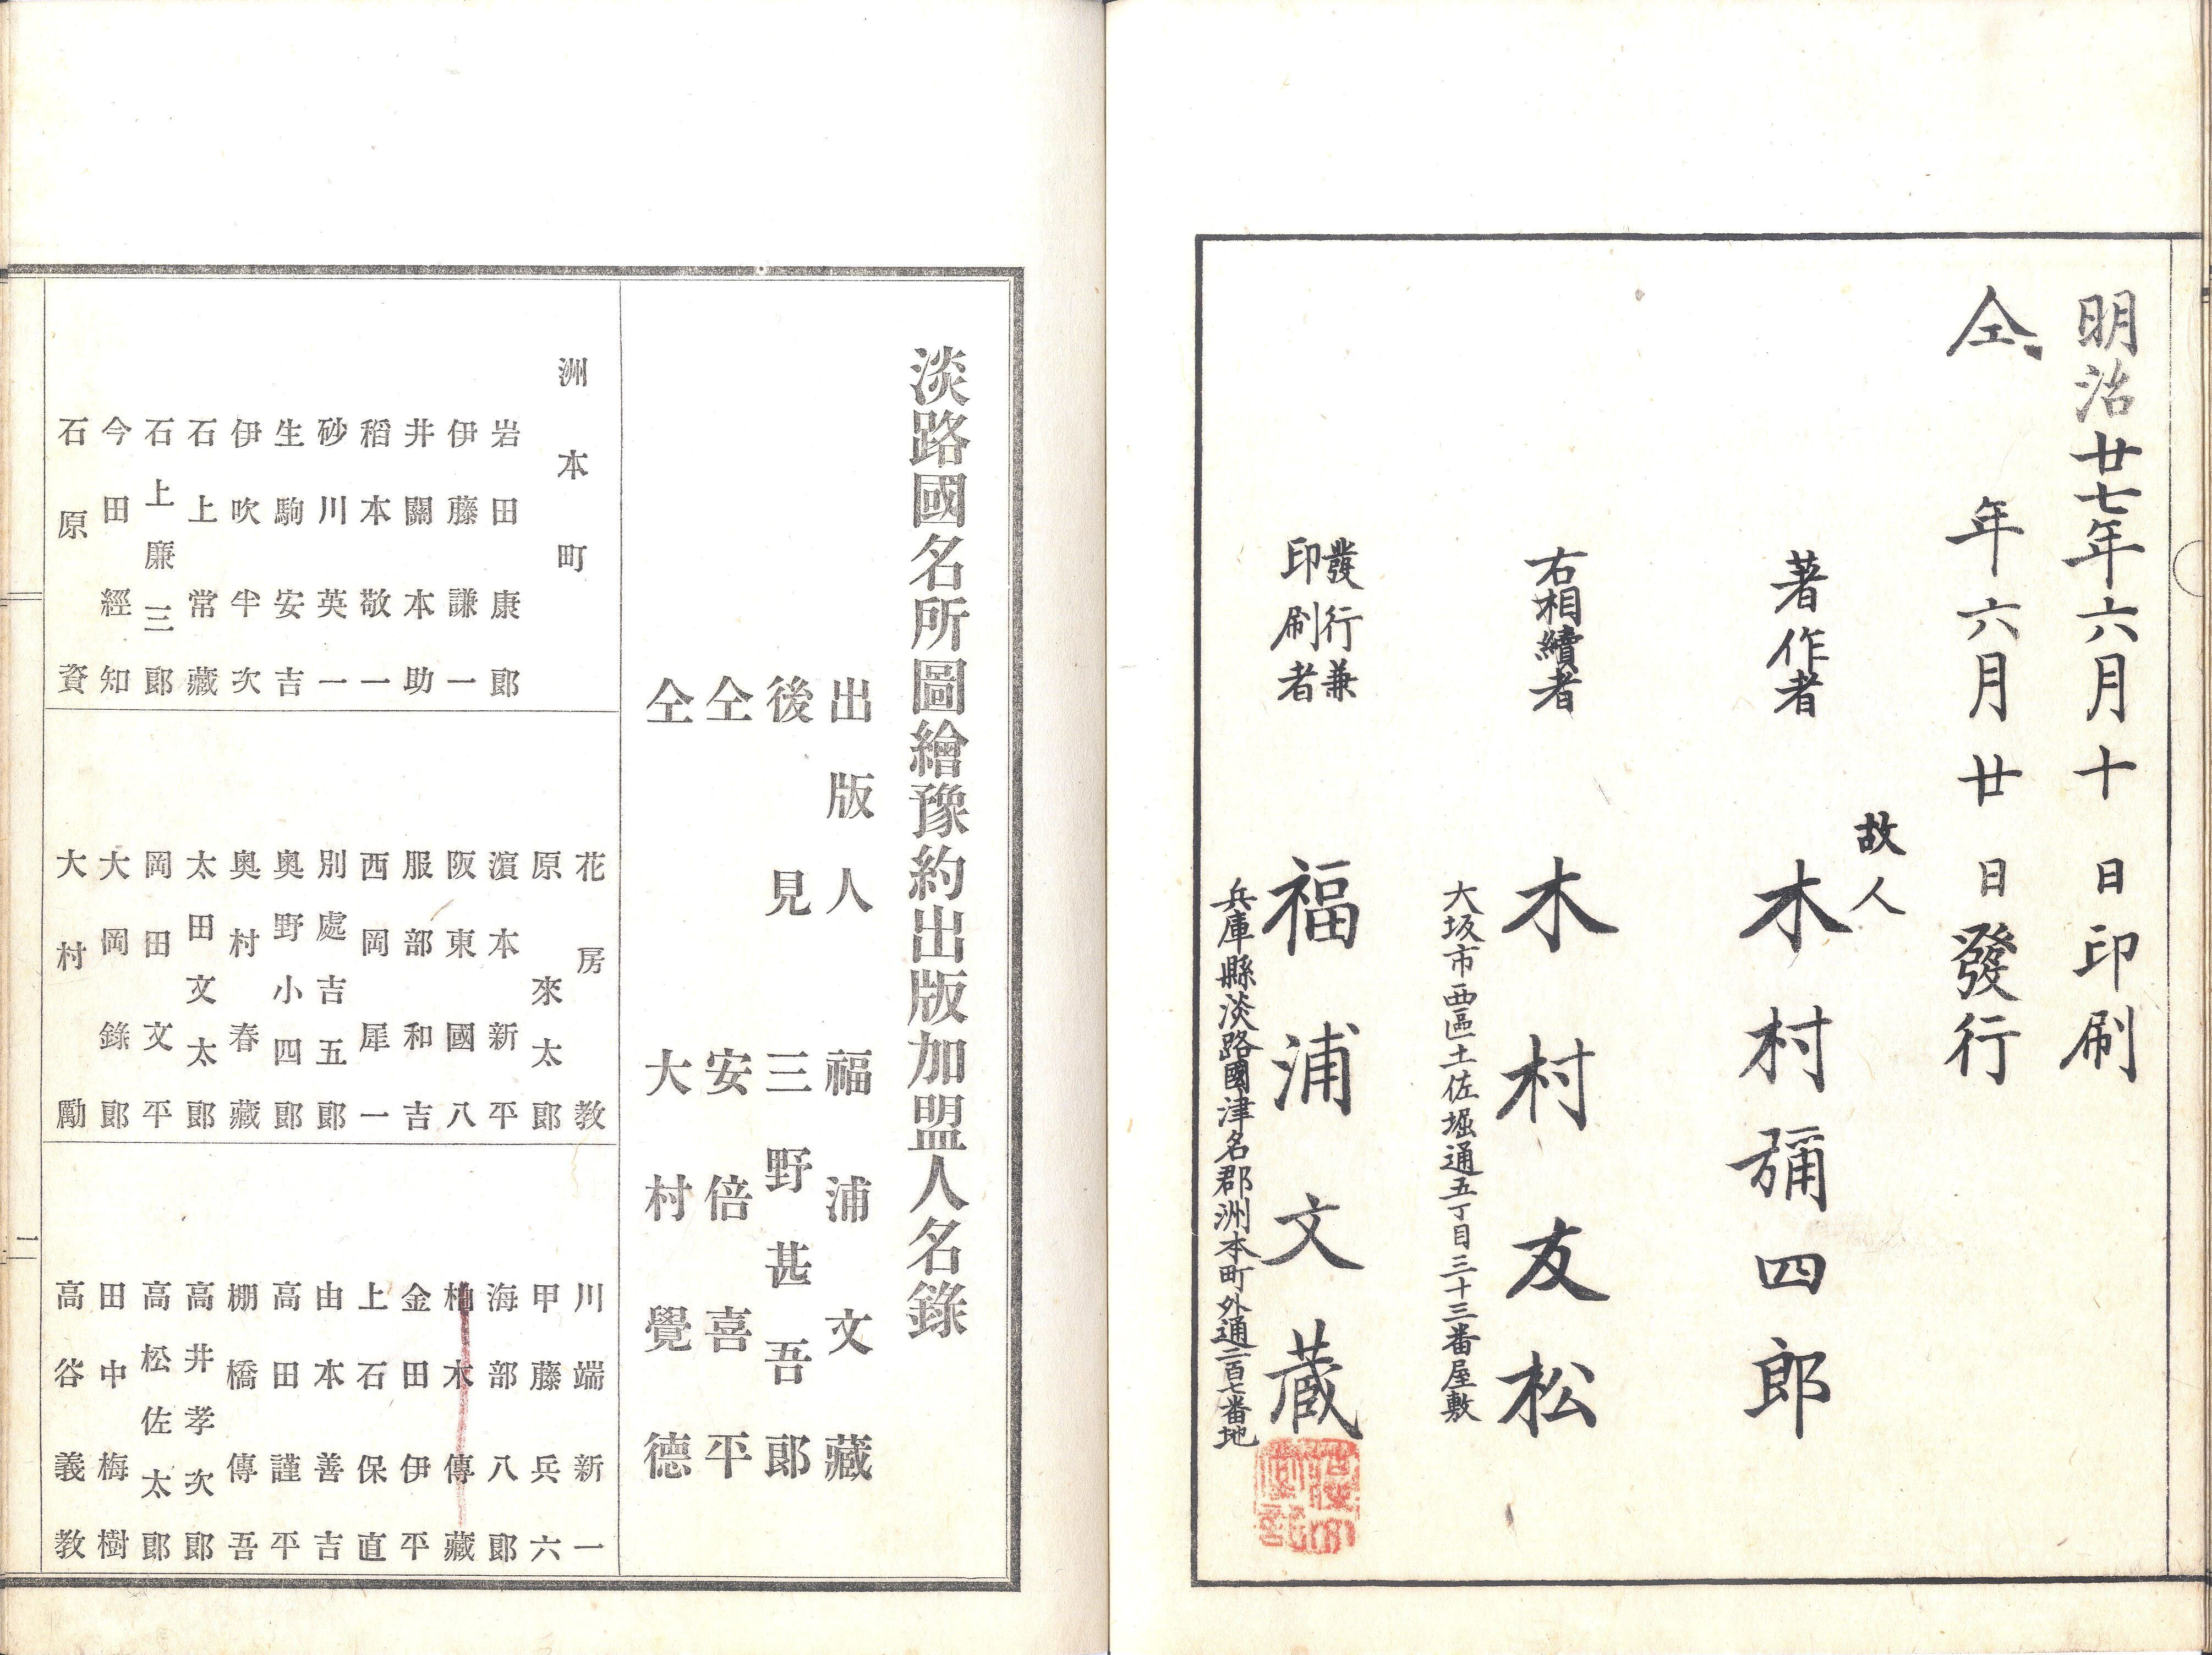 明治廿七年六月十日印刷
仝 年六月廿日發行
著作者 故人 木村彌四郎
右相續者 木村友松
大坂市西區土佐堀通五丁目三十三番屋敷
發行兼印刷者 福浦文蔵
兵庫縣淡路國津名郡洲本町外通二百七番地
淡路國名所圖繪豫約出版加盟人名錄
出版人 福浦文藏
後見 三野甚吾郎
仝 安倍喜平
仝 大村覺德
洲本町
岩田康郎
伊藤謙一
井關本助
稻本敬一
砂川英一
生駒安吉
伊吹半次
石上常藏
石上廉三郎
今田經知
石原資
花房教
原來太郎
濵本新平
阪東國八
服部和吉
西岡犀一
別處吉五郎
奥野小四郎
奥村春藏
太田文太郎
岡田文平
大岡錄郎
大村勵
川端新一
甲藤兵六
海部八郎
柚木傳藏
金田伊平
上石保直
由本善吉
高田謹平
棚橋傳吾
高井孝次郎
高松佐太郎
田中梅樹
高谷義教
一